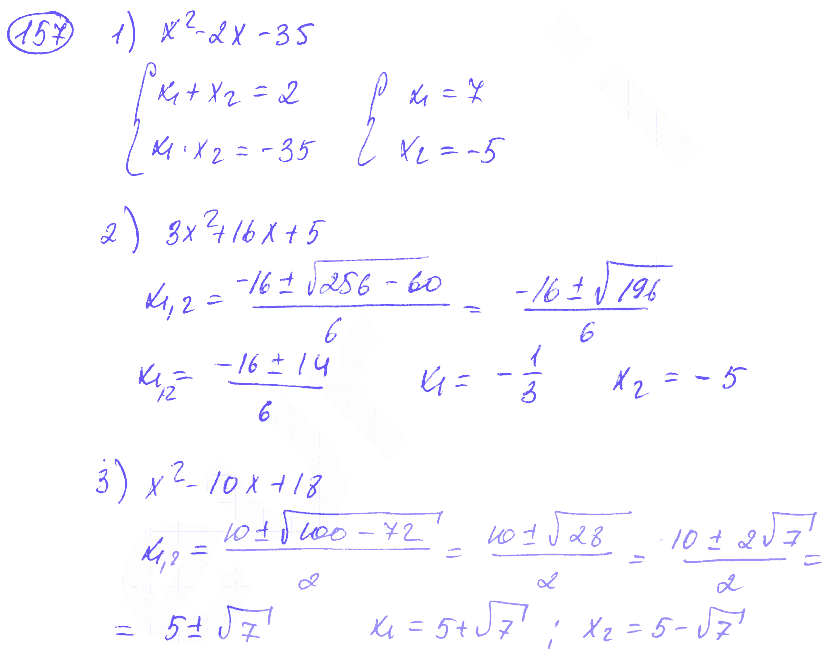 157 1) x² - 2x - 35
{ x₁ + x₂ = 2 { x₁ = 7
{ x₁ · x₂ = -35 { x₂ = -5
2) 3x² + 16x + 5
x₁,₂ = (-16 ± √(256 - 60))/6 = (-16 ± √196)/6
x₁,₂ = (-16 ± 14)/6 x₁ = -1/3 x₂ = -5
3) x² - 10x + 18
x₁,₂ = (10 ± √(100 - 72))/2 = (10 ± √28)/2 = (10 ± 2√7)/2 =
= 5 ± √7 x₁ = 5 + √7 ; x₂ = 5 - √7